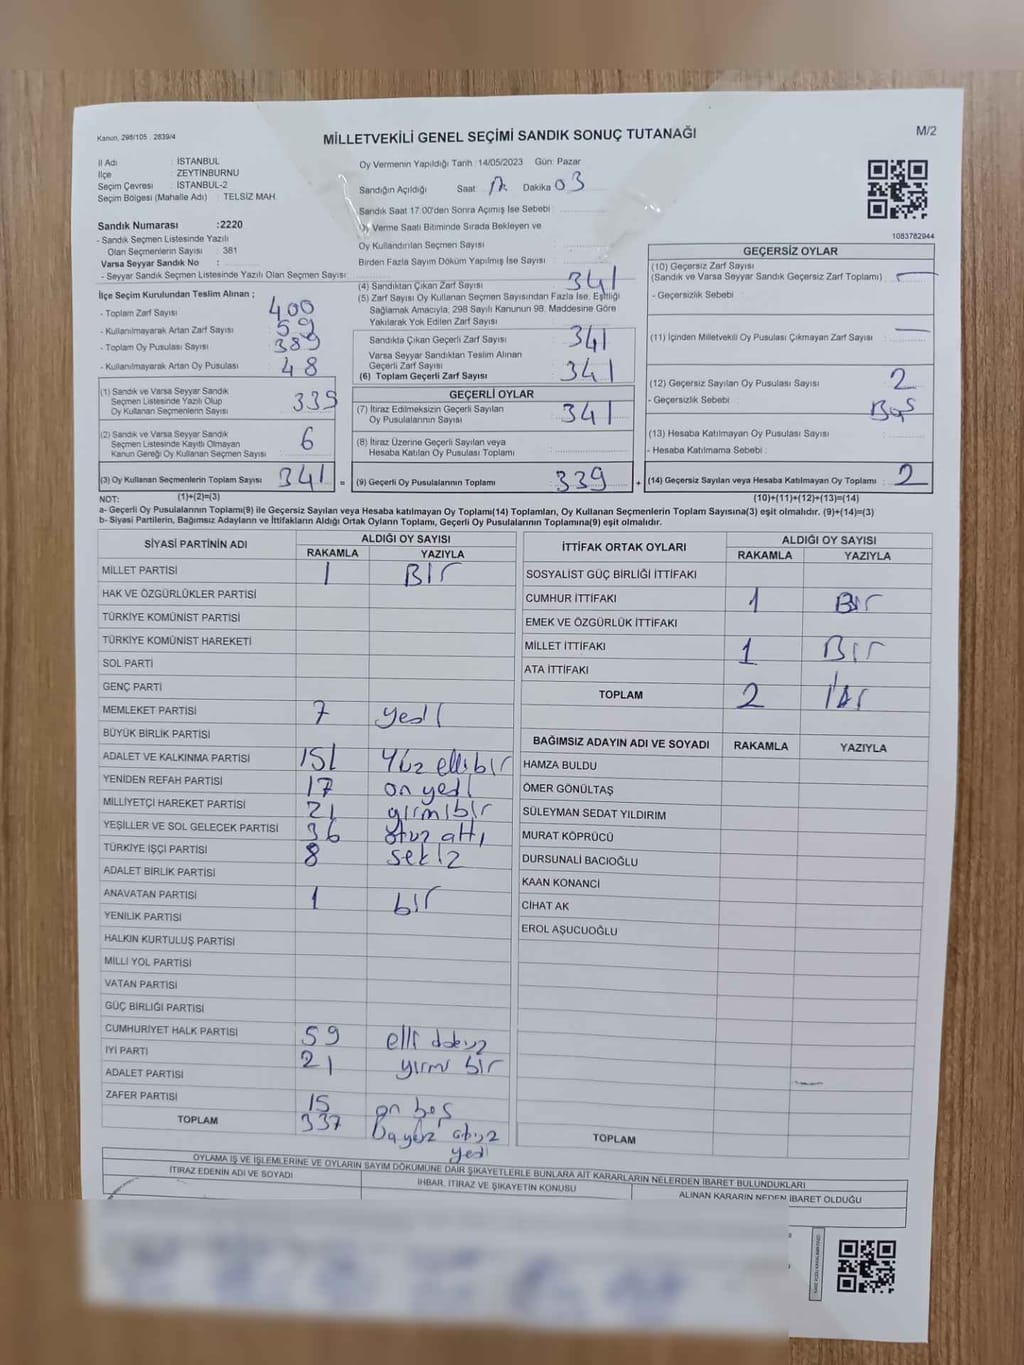 Kanun, 298/105 . 2839/4
MİLLETVEKİLİ GENEL SEÇİMİ SANDIK SONUÇ TUTANAĞI
M/2
İl Adı : İSTANBUL
İlçe : ZEYTİNBURNU
Seçim Çevresi : İSTANBUL-2
Seçim Bölgesi (Mahalle Adı) : TELSİZ MAH.
Sandık Numarası :2220
- Sandık Seçmen Listesinde Yazılı
Olan Seçmenlerin Sayısı : 381
Varsa Seyyar Sandık No :
- Seyyar Sandık Seçmen Listesinde Yazılı Olan Seçmen Sayısı:
İlçe Seçim Kurulundan Teslim Alınan ;
- Toplam Zarf Sayısı : 400
- Kullanılmayarak Artan Zarf Sayısı : 59
- Toplam Oy Pusulası Sayısı : 389
- Kullanılmayarak Artan Oy Pusulası : 48
(1) Sandık ve Varsa Seyyar Sandık
Seçmen Listesinde Yazılı Olup
Oy Kullanan Seçmenlerin Sayısı : 335
(2) Sandık ve Varsa Seyyar Sandık
Seçmen Listesinde Kayıtlı Olmayan
Kanun Gereği Oy Kullanan Seçmen Sayısı : 6
(3) Oy Kullanan Seçmenlerin Toplam Sayısı : 341
Oy Vermenin Yapıldığı Tarih : 14/05/2023 Gün: Pazar
Sandığın Açıldığı Saat: Dakika 03
Sandık Saat 17:00'den Sonra Açılmış İse Sebebi :
Oy Verme Saati Bitiminde Sırada Bekleyen ve
Oy Kullandırılan Seçmen Sayısı :
Birden Fazla Sayım Döküm Yapılmış İse Sayısı :
(4) Sandıktan Çıkan Zarf Sayısı : 341
(5) Zarf Sayısı Oy Kullanan Seçmen Sayısından Fazla İse, Eşitliği
Sağlamak Amacıyla; 298 Sayılı Kanunun 98. Maddesine Göre
Yakılarak Yok Edilen Zarf Sayısı :
Sandıkta Çıkan Geçerli Zarf Sayısı : 341
Varsa Seyyar Sandıktan Teslim Alınan
Geçerli Zarf Sayısı :
(6) Toplam Geçerli Zarf Sayısı : 341
GEÇERLİ OYLAR
(7) İtiraz Edilmeksizin Geçerli Sayılan
Oy Pusulalarının Sayısı : 341
(8) İtiraz Üzerine Geçerli Sayılan veya
Hesaba Katılan Oy Pusulası Toplamı :
= (9) Geçerli Oy Pusulalarının Toplamı : 339
1083782944
GEÇERSİZ OYLAR
(10) Geçersiz Zarf Sayısı
(Sandık ve Varsa Seyyar Sandık Geçersiz Zarf Toplamı) :
- Geçersizlik Sebebi :
(11) İçinden Milletvekili Oy Pusulası Çıkmayan Zarf Sayısı :
(12) Geçersiz Sayılan Oy Pusulası Sayısı : 2
- Geçersizlik Sebebi : Boş
(13) Hesaba Katılmayan Oy Pusulası Sayısı :
- Hesaba Katılmama Sebebi :
+ (14) Geçersiz Sayılan veya Hesaba Katılmayan Oy Toplamı : 2
NOT: (1)+(2)=(3) (10)+(11)+(12)+(13)=(14)
a- Geçerli Oy Pusulalarının Toplamı(9) ile Geçersiz Sayılan veya Hesaba katılmayan Oy Toplamı(14) Toplamları, Oy Kullanan Seçmenlerin Toplam Sayısına(3) eşit olmalıdır. (9)+(14)=(3)
b- Siyasi Partilerin, Bağımsız Adayların ve İttifakların Aldığı Ortak Oyların Toplamı, Geçerli Oy Pusulalarının Toplamına(9) eşit olmalıdır.
SİYASİ PARTİNİN ADI ALDIĞI OY SAYISI
RAKAMLA YAZIYLA
MİLLET PARTİSİ 1 BİR
HAK VE ÖZGÜRLÜKLER PARTİSİ
TÜRKİYE KOMÜNİST PARTİSİ
TÜRKİYE KOMÜNİST HAREKETİ
SOL PARTİ
GENÇ PARTİ
MEMLEKET PARTİSİ 7 yedi
BÜYÜK BİRLİK PARTİSİ
ADALET VE KALKINMA PARTİSİ 151 Yüz elli bir
YENİDEN REFAH PARTİSİ 17 on yedi
MİLLİYETÇİ HAREKET PARTİSİ 21 yirmi bir
YEŞİLLER VE SOL GELECEK PARTİSİ 36 otuz altı
TÜRKİYE İŞÇİ PARTİSİ 8 sekiz
ADALET BİRLİK PARTİSİ
ANAVATAN PARTİSİ 1 bir
YENİLİK PARTİSİ
HALKIN KURTULUŞ PARTİSİ
MİLLİ YOL PARTİSİ
VATAN PARTİSİ
GÜÇ BİRLİĞİ PARTİSİ
CUMHURİYET HALK PARTİSİ 59 elli dokuz
İYİ PARTİ 21 yirmi bir
ADALET PARTİSİ
ZAFER PARTİSİ 15 on beş
TOPLAM 337 otuz
yedi
İTTİFAK ORTAK OYLARI ALDIĞI OY SAYISI
RAKAMLA YAZIYLA
SOSYALİST GÜÇ BİRLİĞİ İTTİFAKI
CUMHUR İTTİFAKI 1 BİR
EMEK VE ÖZGÜRLÜK İTTİFAKI
MİLLET İTTİFAKI 1 BİR
ATA İTTİFAKI
TOPLAM 2 iki
BAĞIMSIZ ADAYIN ADI VE SOYADI RAKAMLA YAZIYLA
HAMZA BULDU
ÖMER GÖNÜLTAŞ
SÜLEYMAN SEDAT YILDIRIM
MURAT KÖPRÜCÜ
DURSUNALİ BACIOĞLU
KAAN KONANCİ
CİHAT AK
EROL AŞUCUOĞLU
TOPLAM
OYLAMA İŞ VE İŞLEMLERİNE VE OYLARIN SAYIM DÖKÜMÜNE DAİR ŞİKAYETLERLE BUNLARA AİT KARARLARIN NELERDEN İBARET BULUNDUKLARI
İTİRAZ EDENİN ADI VE SOYADI İHBAR, İTİRAZ VE ŞİKAYETİN KONUSU ALINAN KARARIN NEDEN İBARET OLDUĞU